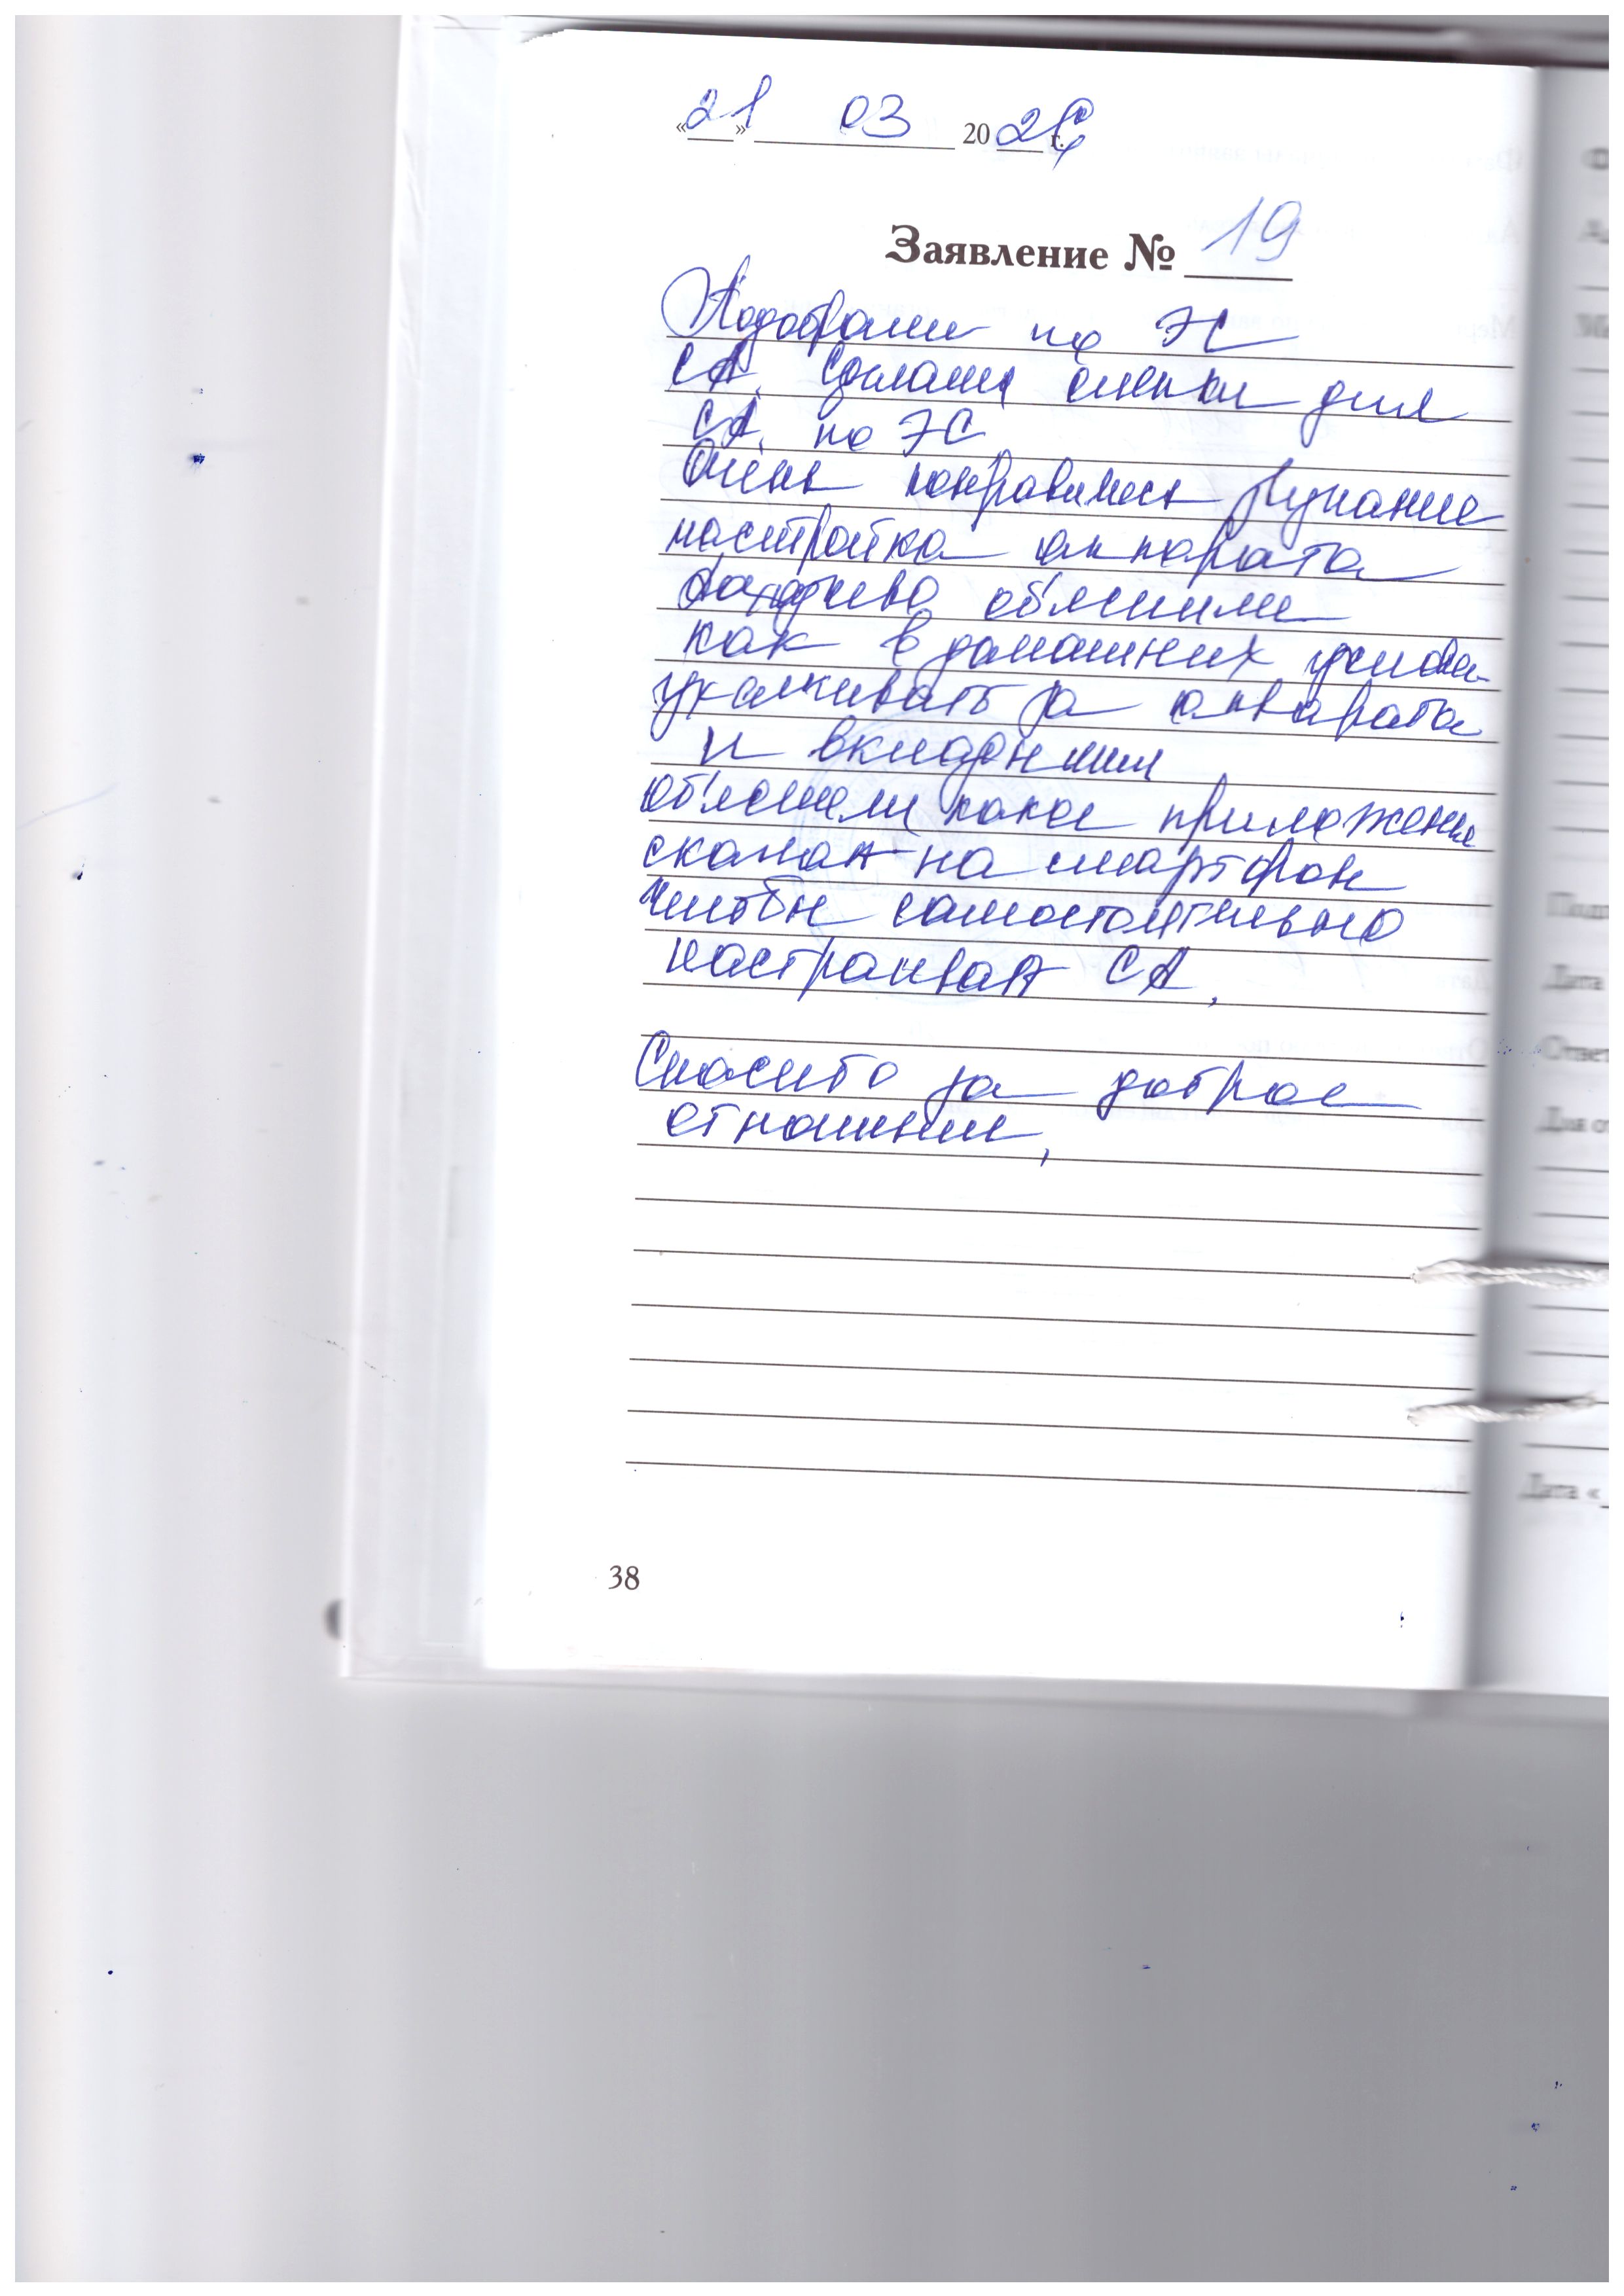 «21» 03 2026 г.
Заявление № 19
Подобрали по ЭС
СА. Сделали слепки для
СА. по ЭС
Очень понравилось звучание
настройка аппарата
объяснили
как в домашних услови-
ухаживать за аппарата
и вкладыши
объяснили какое приложение
скачать на смартфон
чтобы самостоятельно
настраивать СА,
Спасибо за доброе
отношение,
38